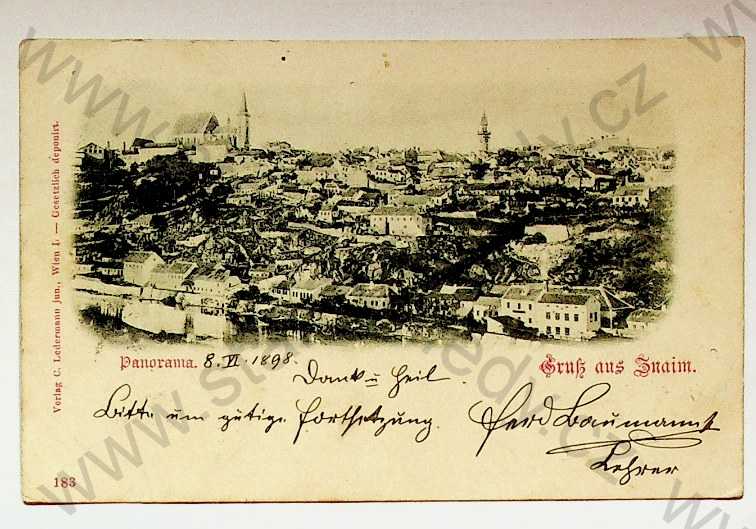 Verlag C. Ledermann jun., Wien I. — Gesetzlich deponirt.
Panorama. 8. VI. 1898.
Gruß aus Znaim.
Dank u Heil.
Bitte um gütige Fortsetzung.
Ferd Baumann
Lehrer
183